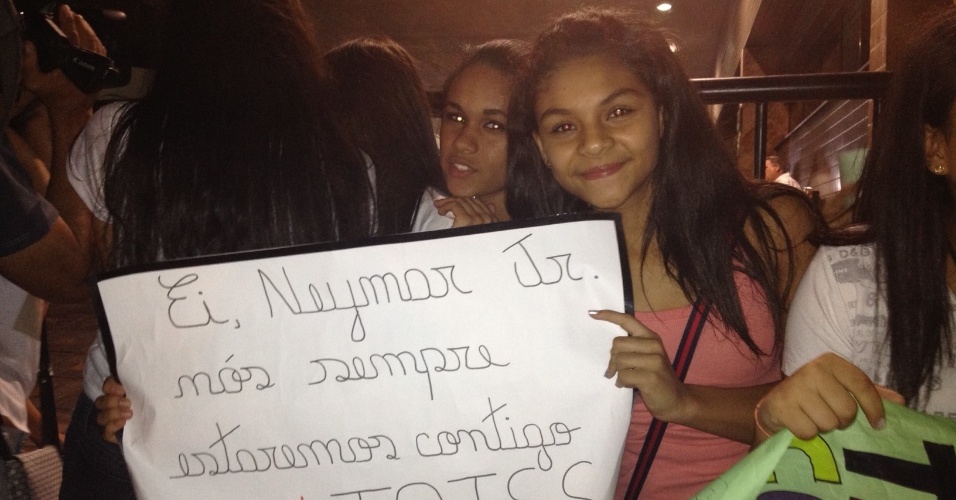 Ei, Neymar Jr.
nós sempre
estaremos contigo
D&G